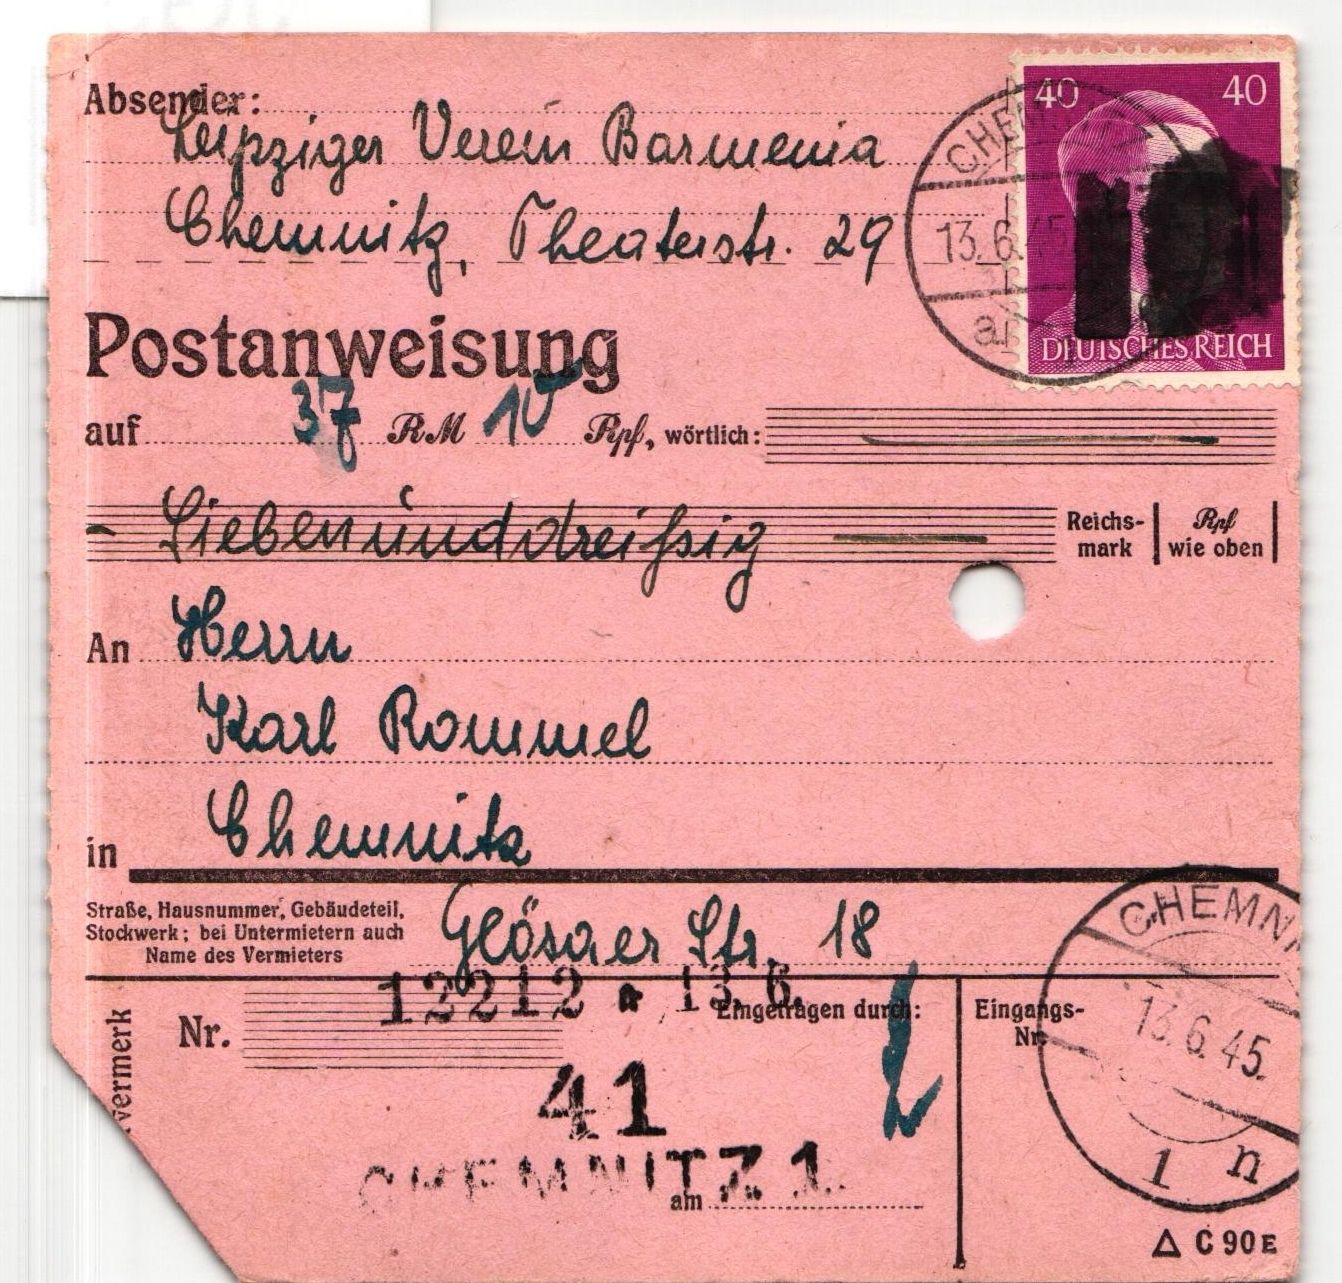 Absender:
Leipziger Verein Barmenia
Chemnitz, Theaterstr. 29
40 40
CHEMNITZ
13.6.45
DEUTSCHES REICH
Postanweisung
auf 37 RM 10 Rpf, wörtlich:
Siebenunddreißig
Reichs-
mark
Rpf
wie oben
An Herrn
Karl Rommel
in Chemnitz
Straße, Hausnummer, Gebäudeteil,
Stockwerk; bei Untermietern auch
Name des Vermieters
Glösaer Str. 18
12212 * 13. 6.
vermerk
Nr.
Eingetragen durch:
Eingangs-
Nr.
41
CHEMNITZ 1
am
CHEMN
13.6.45.
1 n
C 90E